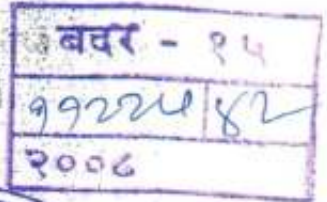 बदर - १५
११२२५ ४२
२००८